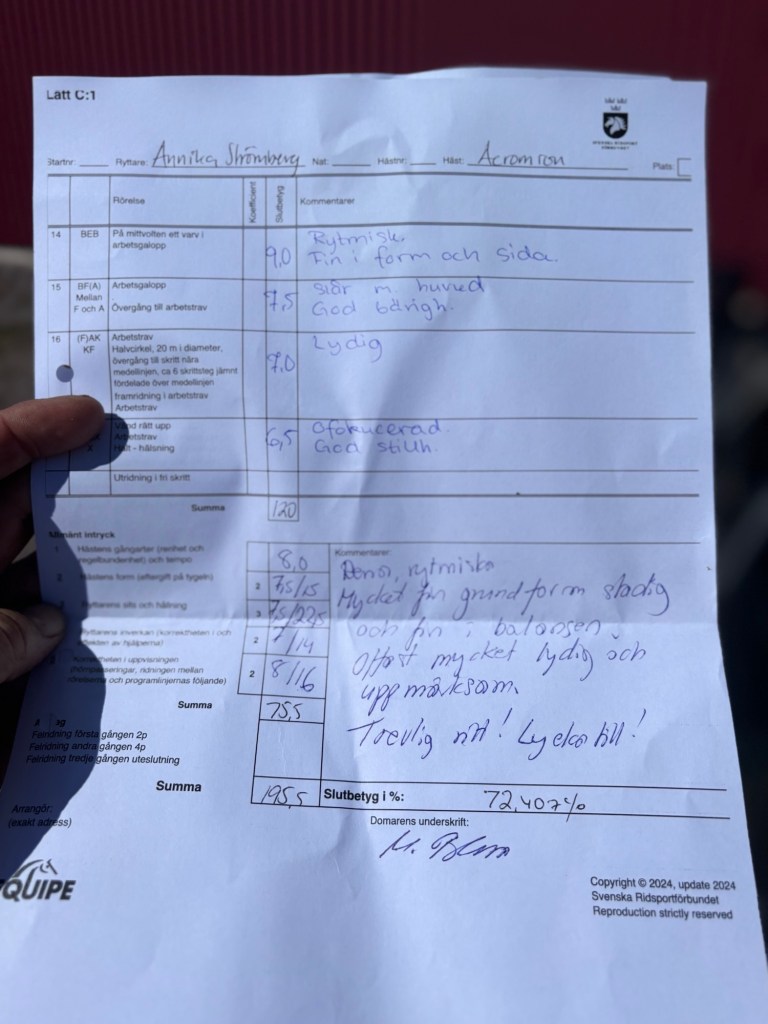 Lätt C:1
SVENSKA RIDSPORT
FÖRBUNDET
Startnr: Ryttare: Annika Strömberg Nat: Hästnr: Häst: Acromion Plats:
Rörelse Koefficient Slutbetyg Kommentarer
14 BEB På mittvolten ett varv i
arbetsgalopp
9,0 Rytmisk.
Fin i form och sida.
15 BF(A) Arbetsgalopp 7,5 Stör m. huvud
Mellan
F och A Övergång till arbetstrav God bärigh.
16 (F)AK Arbetstrav 7,0 Lydig
KF Halvcirkel, 20 m i diameter,
övergång till skritt nära
medellinjen, ca 6 skrittsteg jämnt
fördelade över medellinjen
framridning i arbetstrav
Arbetstrav
Vänd rätt upp 6,5 Ofokucerad.
Arbetstrav
X Halt - hälsning God stillh.
Utridning i fri skritt
Summa 120
Allmänt intryck
1 Hästens gångarter (renhet och
regelbundenhet) och tempo
8,0
Kommentarer:
Rena, rytmiska
2 Hästens form (eftergift på tygeln) 2 7,5/15
Mycket fin grundform stadig
3 Ryttarens sits och hållning 3 7,5/22,5
och fin i balansen.
Ryttarens inverkan (korrektheten i och
effekten av hjälperna) 2 7/14
Oftast mycket lydig och
uppmärksam.
Korrektheten i uppvisningen
(hörnpasseringar, ridningen mellan
rörelserna och programlinjernas följande) 2 8/16
Trevlig ritt! Lycka till!
Summa 75,5
Felridning första gången 2p
Felridning andra gången 4p
Felridning tredje gången uteslutning
Summa 195,5 Slutbetyg i %: 72,407%
Arrangör:
(exakt adress)
Domarens underskrift:
EQUIPE
Copyright © 2024, update 2024
Svenska Ridsportförbundet
Reproduction strictly reserved